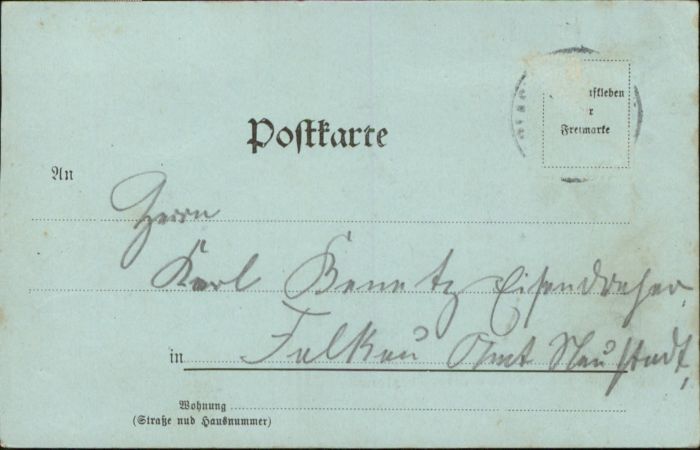 Postkarte
fkleben
r
Freimarke
An
Herrn
Karl Benetz Eisendreher,
in Falkau Amt Neustadt,
Wohnung
(Straße nud Hausnummer)